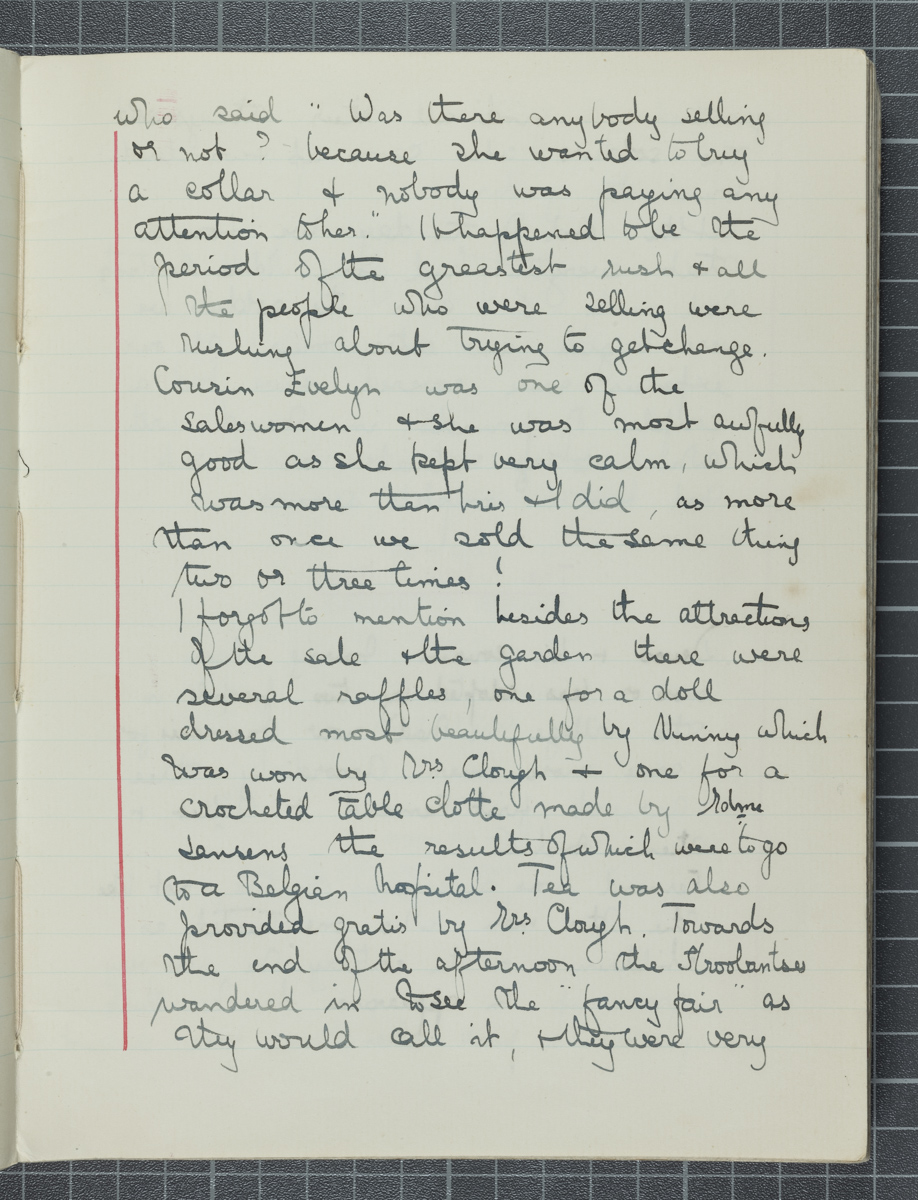 who said "Was there anybody selling
or not? because she wanted to buy
a collar & nobody was paying any
attention to her." It happened to be the
period of the greatest rush & all
the people who were selling were
rushing about trying to get change.
Cousin Evelyn was one of the
saleswomen & she was most awfully
good as she kept very calm, which
was more than Iris & I did, as more
than once we sold the same thing
two or three times!
I forgot to mention besides the attractions
of the sale & the garden there were
several raffles, one for a doll
dressed most beautifully by Nunny which
was won by Mrs Clough & one for a
crocheted table clothe made by Mdme
Jensens the results of which were to go
to a Belgian hospital. Tea was also
provided gratis by Mrs. Clough. Towards
the end of the afternoon the Stroobantses
wandered in to see the "fancy fair" as
they would call it, & they were very